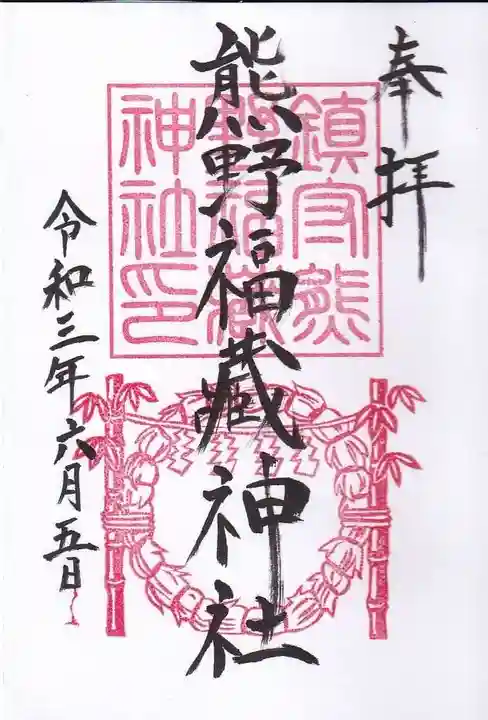 奉拝
熊野福藏神社
令和三年六月五日
鎮守熊
野福蔵
神社印